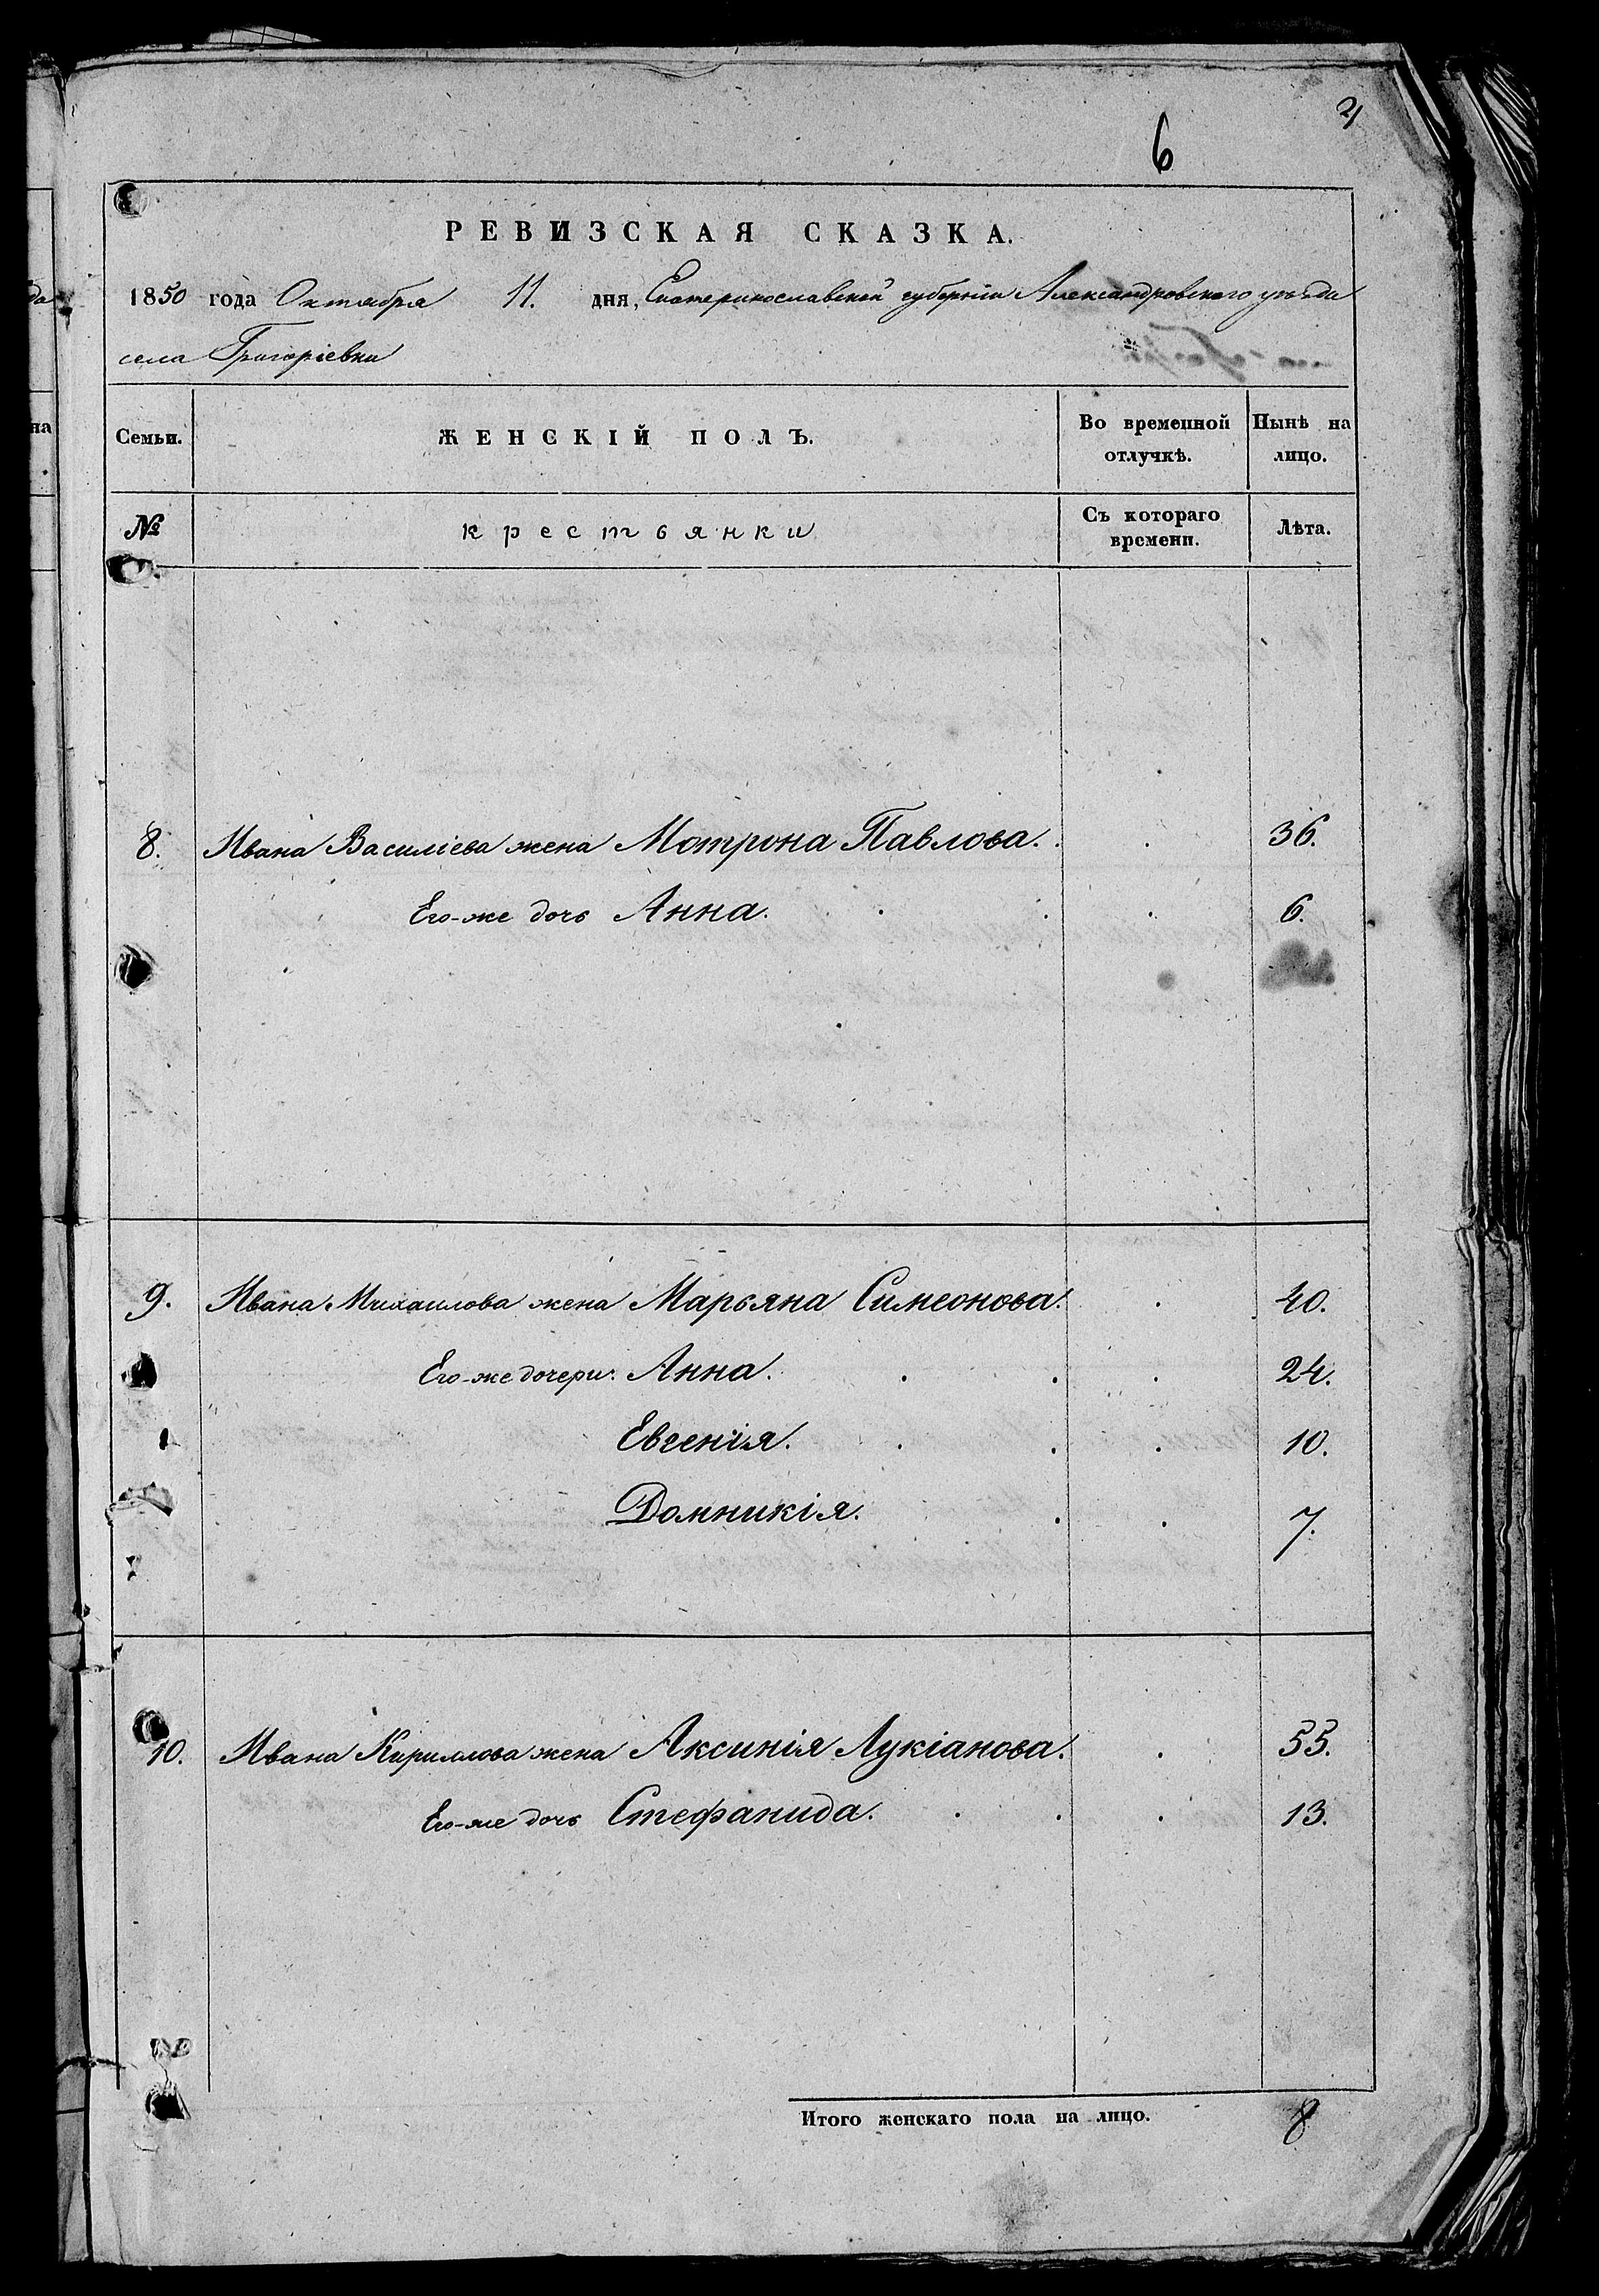 21
6
РЕВИЗСКАЯ СКАЗКА.
1850 года Октября 11. дня, Екатеринославской губерніи Александровского уѣзда
села Григоріевки
Семьи. ЖЕНСКІЙ ПОЛЪ. Во временной отлучкѣ. Нынѣ на лицо.
№ крестьянки Съ котораго времени. Лѣта.
8. Ивана Василіева жена Мотрона Павлова. 36.
Его-же дочь Анна. 6.
9. Ивана Михаилова жена Марьяна Симеонова. 40.
Его-же дочери: Анна. 24.
Евгенія. 10.
Домникія. 7.
10. Ивана Кириллова жена Аксинія Лукіанова. 55.
Его-же дочь Стефанида. 13.
Итого женскаго пола на лицо. 8